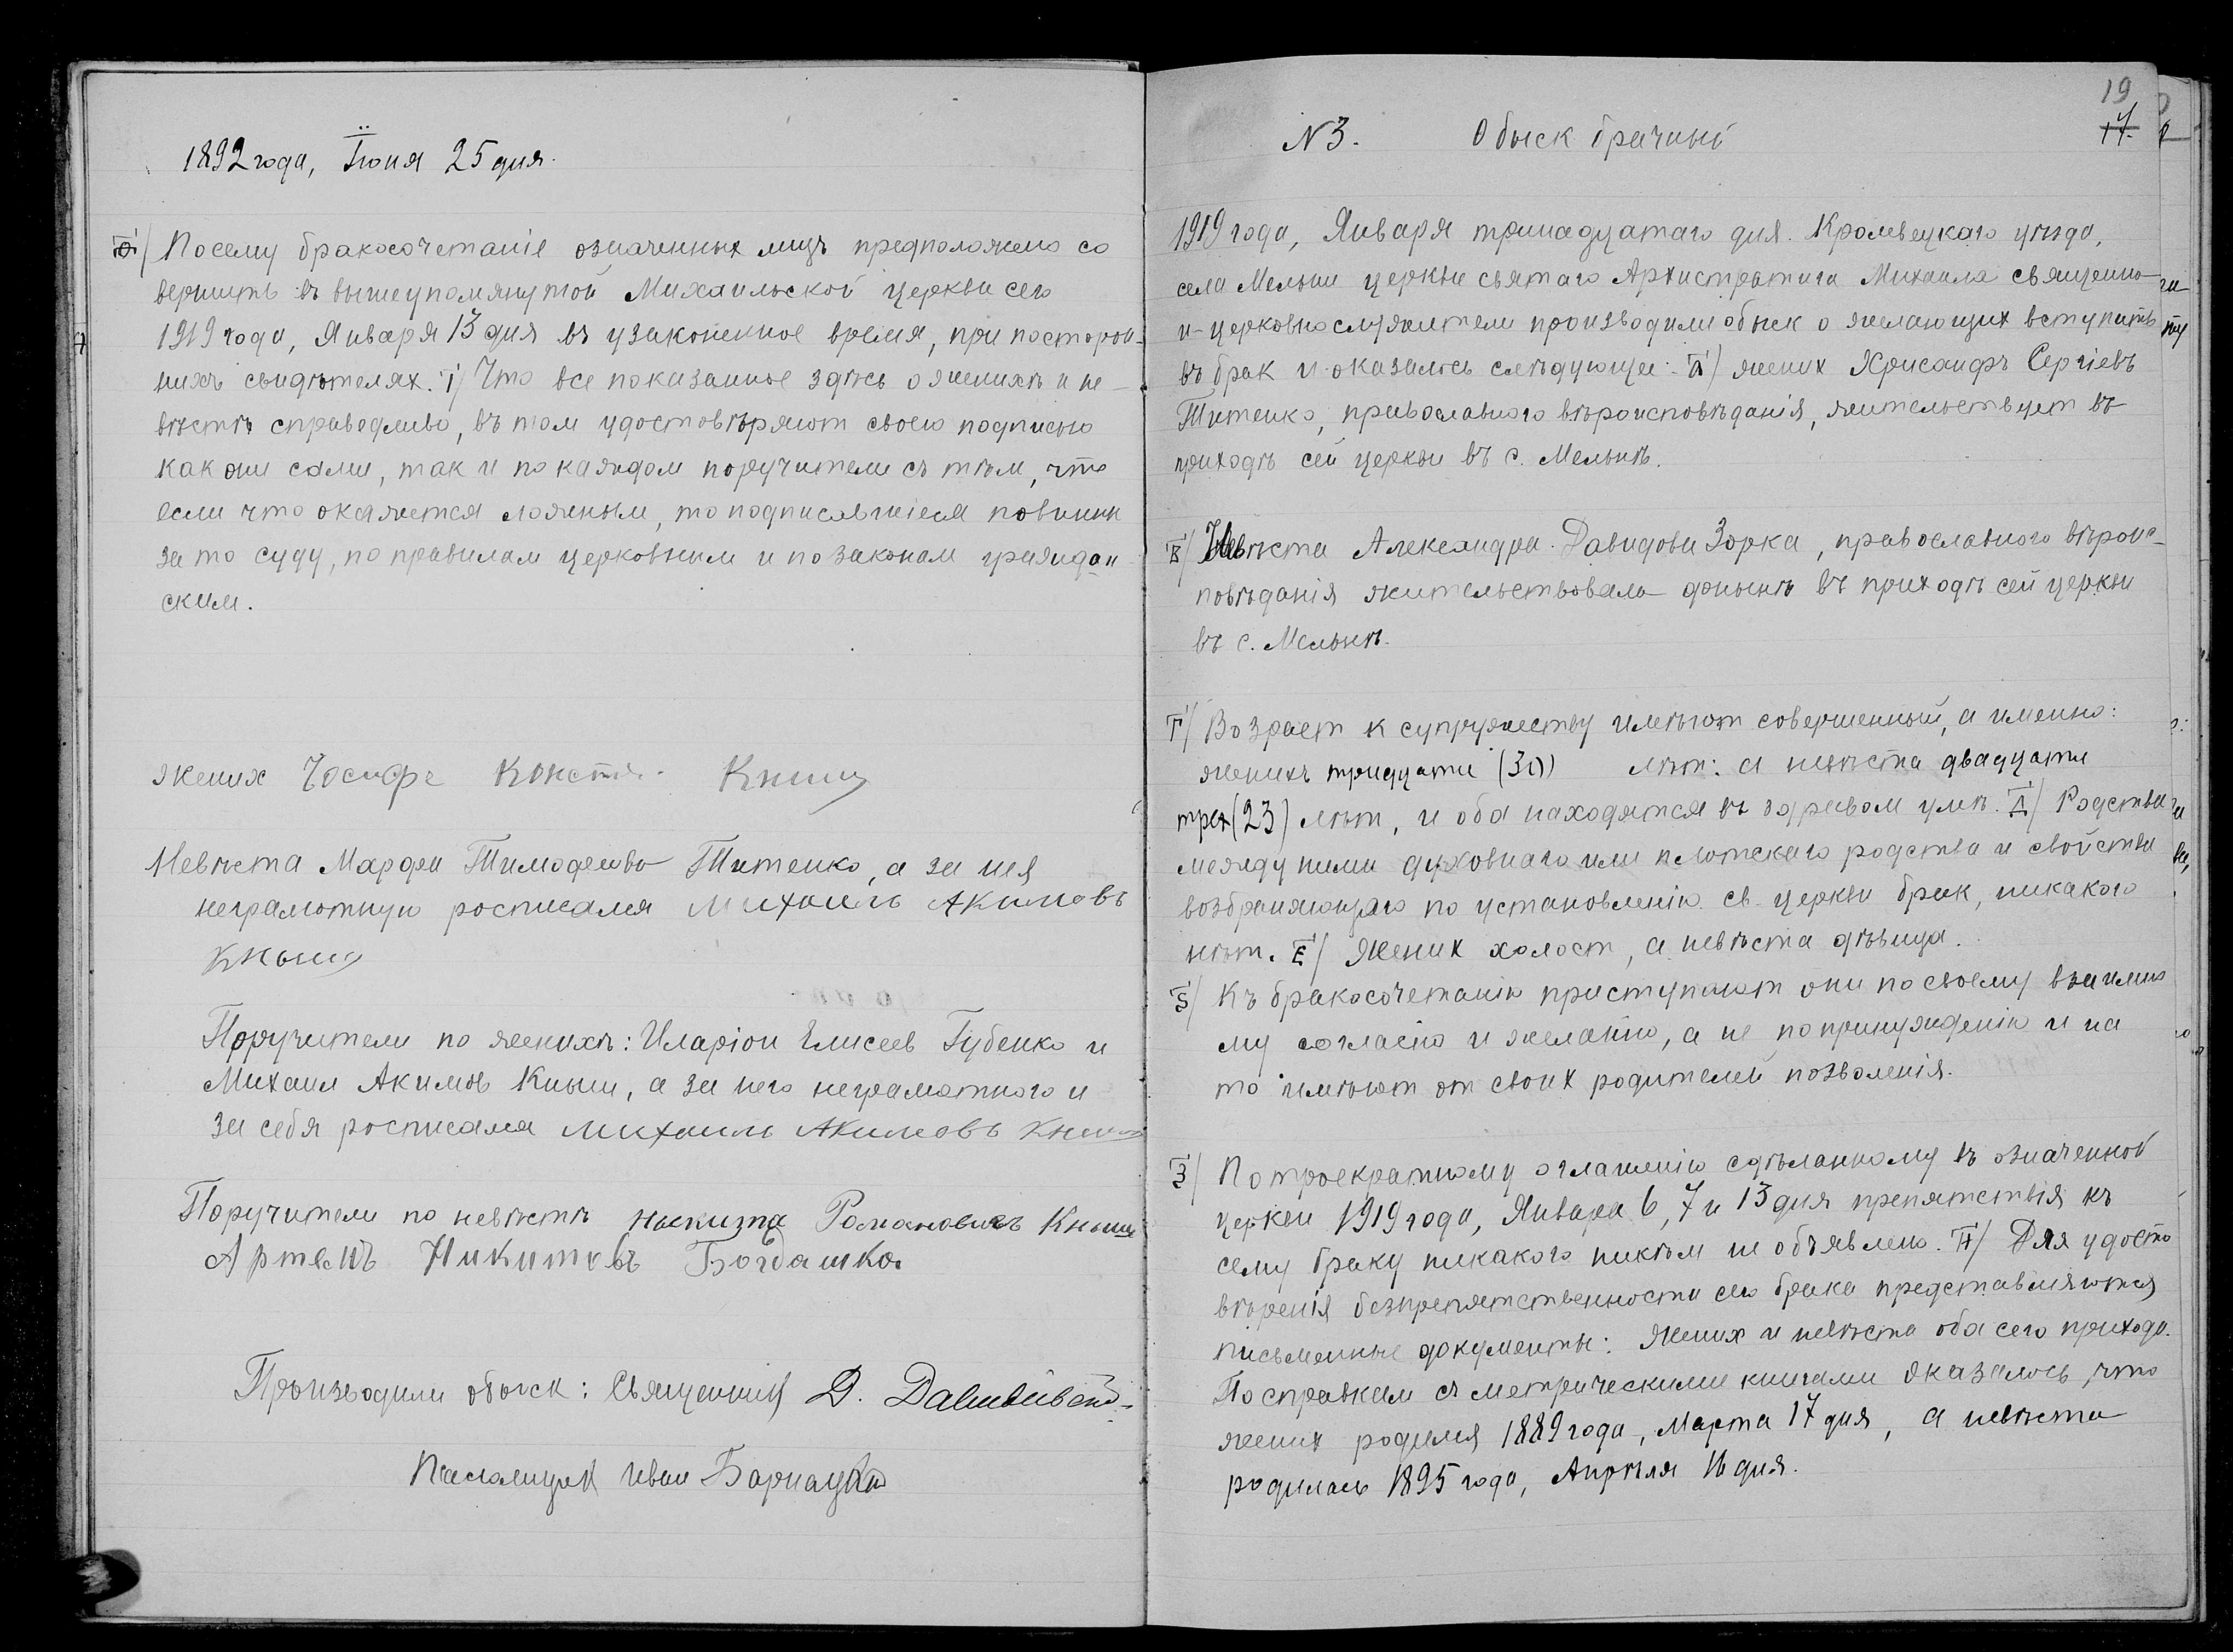 1892 года, Іюня 25 дня.
Ѳ/ Посему бракосочетаніе означенных лицъ предположено со
вершить въ вышеупомянутой Михаильской церкви сего
1919 года, Января 13 дня въ узаконенное время, при посторон-
нихъ свидѣтелях. І/ Что все показанное здѣсь о женихѣ и не-
вѣстѣ справедливо, въ том удостовѣряют своею подписью
как они сами, так и по каждом поручители съ тѣм, что
если что окажется ложным, то подписавшіеся повинны
за то суду, по правилам церковным и по законам граждан
ским.
Жених Іосифе Конст. Книш
Невѣста Марфа Тимофеева Титенко, а за нея
неграмотную росписался Михаилъ Акимовъ
Кныш
Поручители по женихѣ: Иларіон Елисеев Губенко и
Михаил Акимов Кныш, а за него неграмотного и
за себя росписался Михаилъ Акимовъ Кныш
Поручители по невѣстѣ Романовичъ Кныш
Артемъ Никитовъ Богдашко.
Производили обыск: Священник Д.
Псаломщик Иван
19
17.
N 3. Обыск брачный
1919 года, Января тринадцатаго дня. Кролевецкаго уѣзда,
села Мельни церкви святаго Архистратига Михаила священно-
и-церковнослужители производили обыск о желающих вступить
въ брак и оказалось слѣдующее: А/ жених Хрисанфъ Сергіевъ
Титенко, православного вѣроисповѣданія, жительствует въ
приходѣ сей церкви въ с. Мельнѣ.
В/ Невѣста Александра Давидова Зорка, православного вѣроис-
повѣданія жительствовала донынѣ въ приходѣ сей церкви
въ с. Мельнѣ.
Г/ Возраст к супружеству имѣют совершенный, а именно:
женихъ тридцати (30) лѣт: а невѣста двадцати
трех (23) лѣт, и оба находятся въ здравом умѣ. Д/ Родства
между ними духовнаго или плотскаго родства и свойства
возбраняющаго по установленію св. церкви брак, никакого
нѣт. Е/ Жених холост, а невѣста дѣвица.
Ѕ/ Къ бракосочетанію приступают они по своему взаимно
му согласію и желанію, а не по принужденію и на
то имѣют от своих родителей позволенія.
З/ По троекратному оглашенію сдѣланному въ означенной
церкви 1919 года, Января 6, 7 и 13 дня препятствія къ
сему браку никакого никѣм не объявлено. И/ Для удосто
вѣренія безпрепятственности сего брака представляются
письменные документы: Жених и невѣста оба сего прихода.
По справкам съ метрическими книгами оказалось, что
жених родился 1889 года, Марта 17 дня, а невѣста
родилась 1895 года, Апрѣля 16 дня.